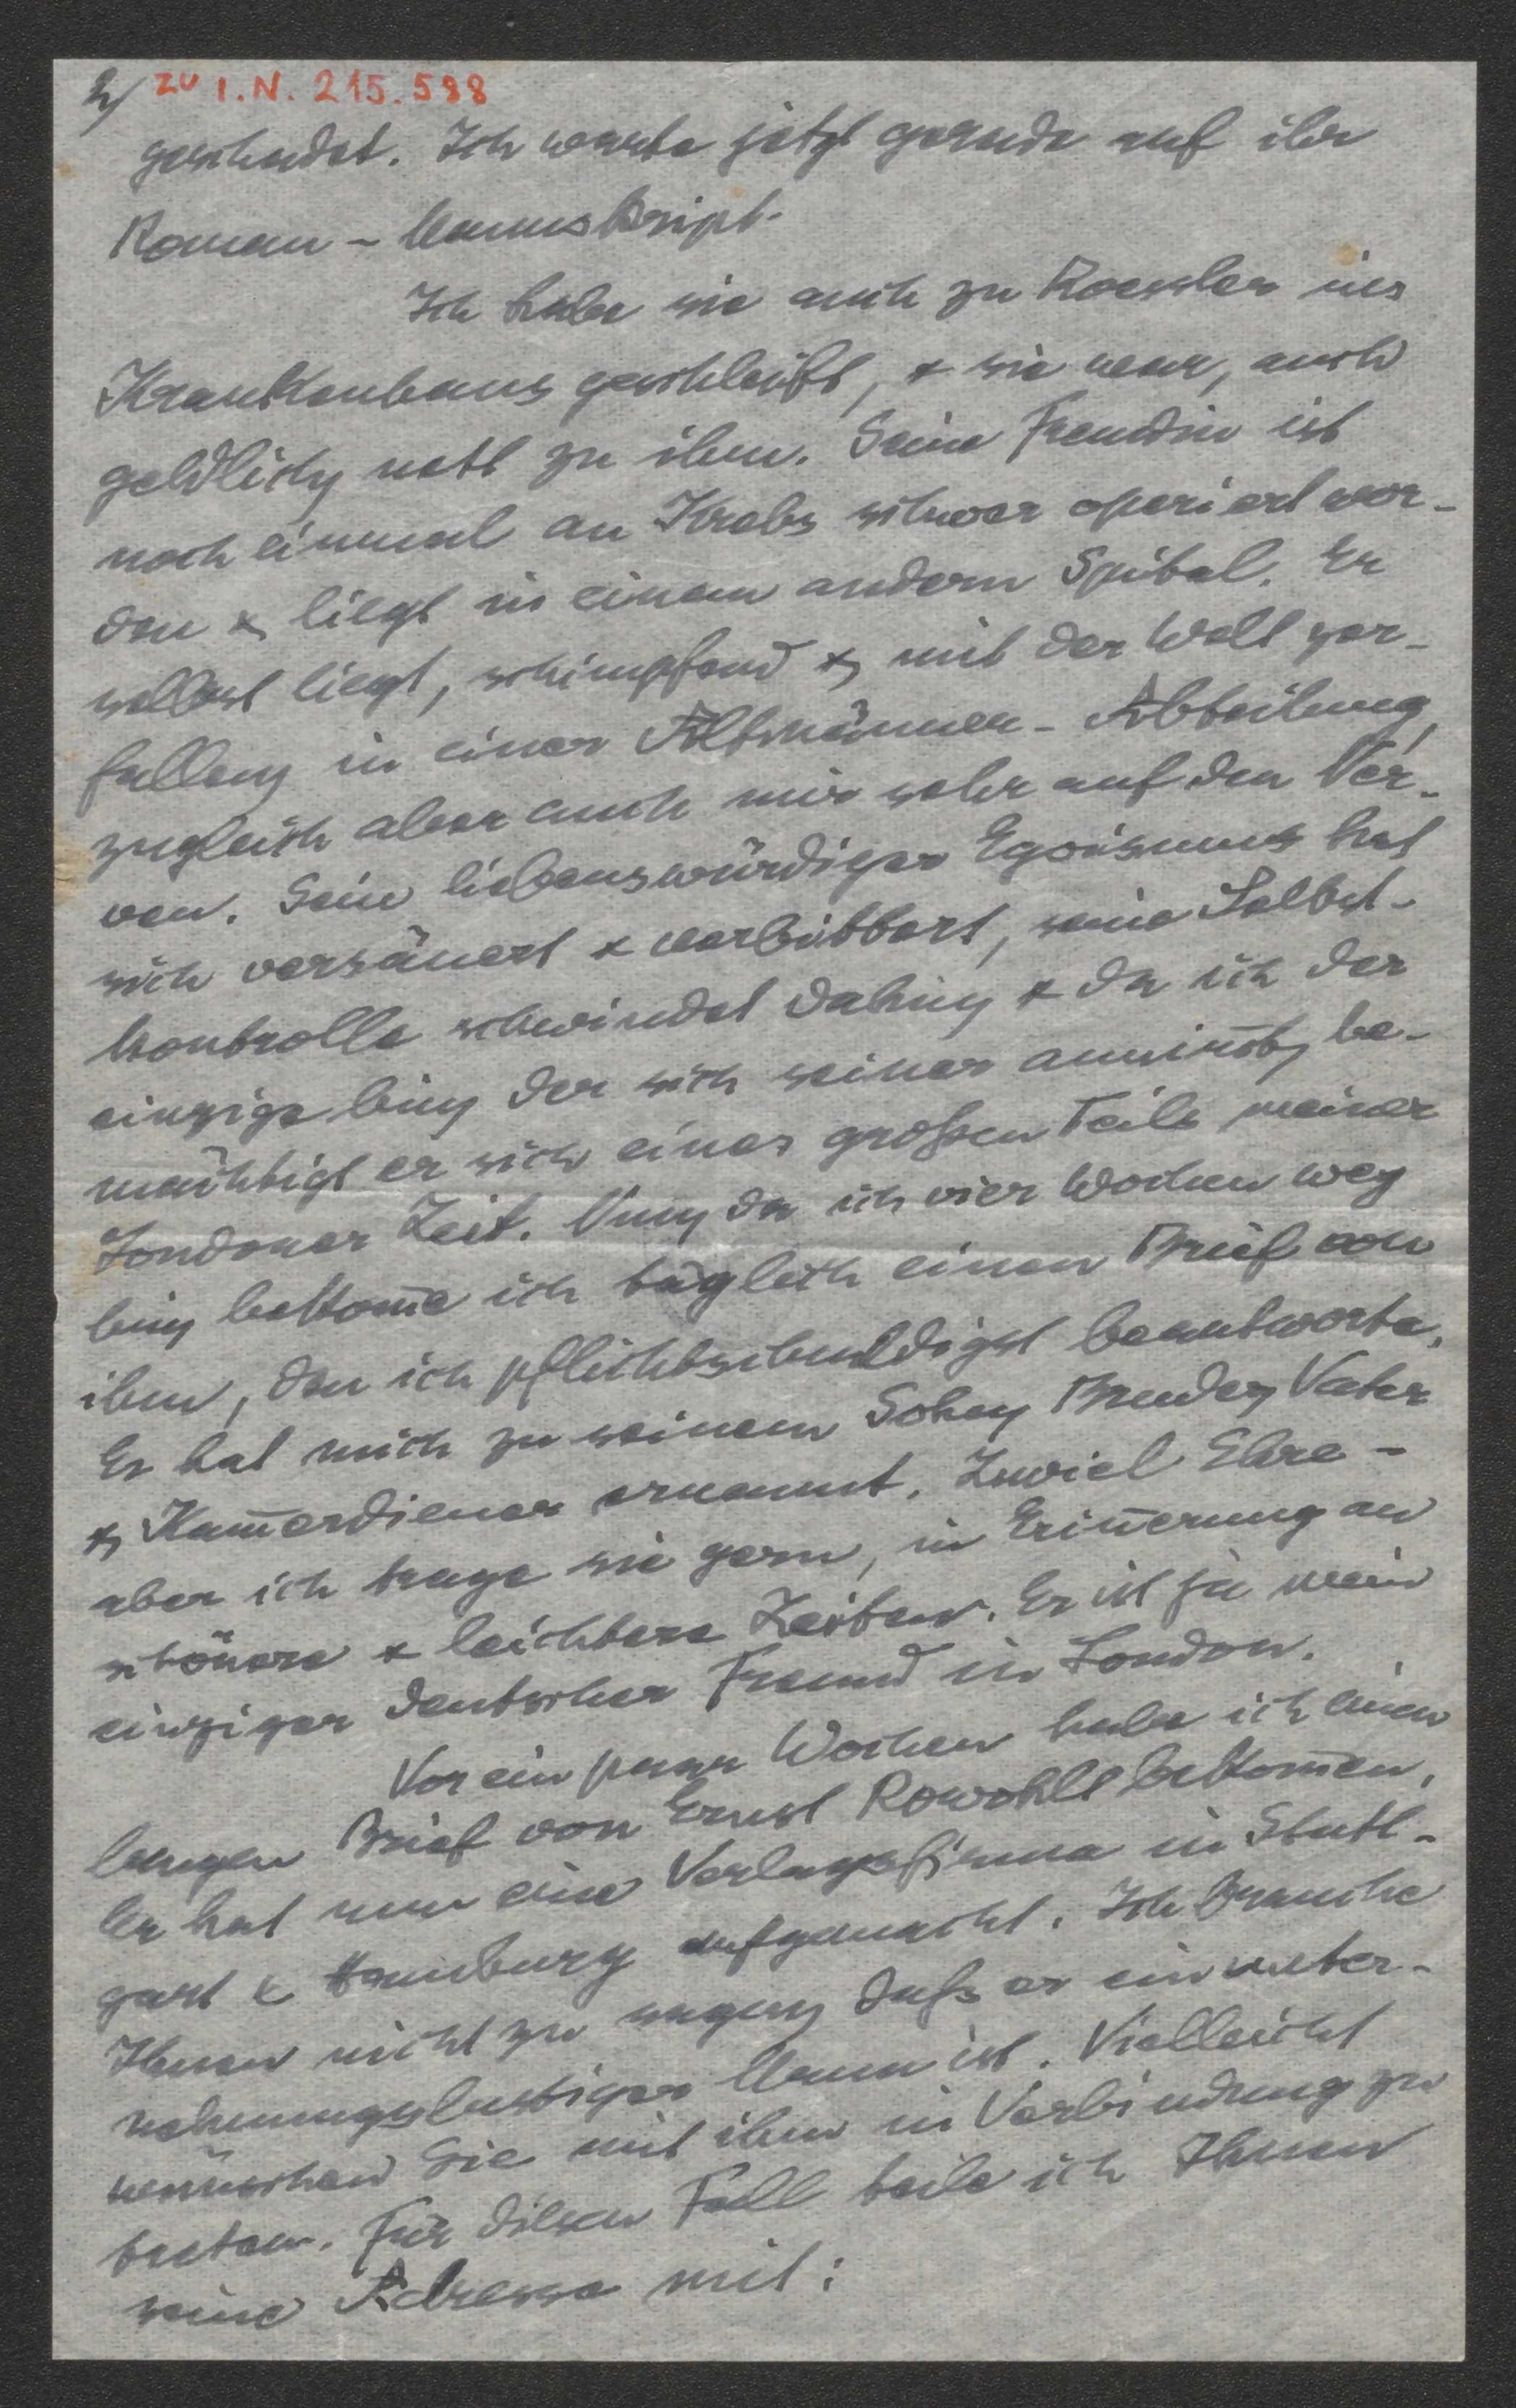 2/ zu I.N. 215.588
geschadet. Ich warte jetzt gerade auf ihr
Roman-Manuskript.
Ich habe sie auch zu Roessler ins
Krankenhaus geschleift, & sie war, auch
geldlich, nett zu ihm. Seine Freundin ist
noch einmal an Krebs schwer operiert wor-
den & liegt in einem andern Spital. Er
selbst liegt, schimpfend & mit der Welt zer-
fallen, in einer Altmänner-Abteilung,
zugleich aber auch mir sehr auf den Ner-
ven. Sein liebenswürdiger Egoismus hat
sich versäuert & verbittert, seine Selbst-
kontrolle schwindet dahin, & da ich der
einzige bin, der sich seiner anni&#772;mt, be-
mächtigt er sich eines großen Teils meiner
Londoner Zeit. Nun, da ich vier Wochen weg
bin, bekom̄e ich täglich einen Brief von
ihm, den ich pflichtschuldigst beantworte.
Er hat mich zu seinem Sohn, Bruder, Vater
& Kam̄erdiener ernannt. Zuviel Ehre -
aber ich trage sie gern, in Erin̄erung an
schönere & leichtere Zeiten. Er ist ja mein
einziger deutscher Freund in London.
Vor ein paar Wochen habe ich einen
langen Brief von Ernst Rowohlt bekom̄en.
Er hat nun eine Verlagsfirma in Stutt-
gart & Hamburg aufgemacht. Ich brauche
Ihnen nicht zu sagen, daß er ein unter-
nehmungslustiger Mann ist. Vielleicht
wünschen Sie mit ihm in Verbindung zu
treten. Für diesen Fall teile ich Ihnen
seine Adresse mit: